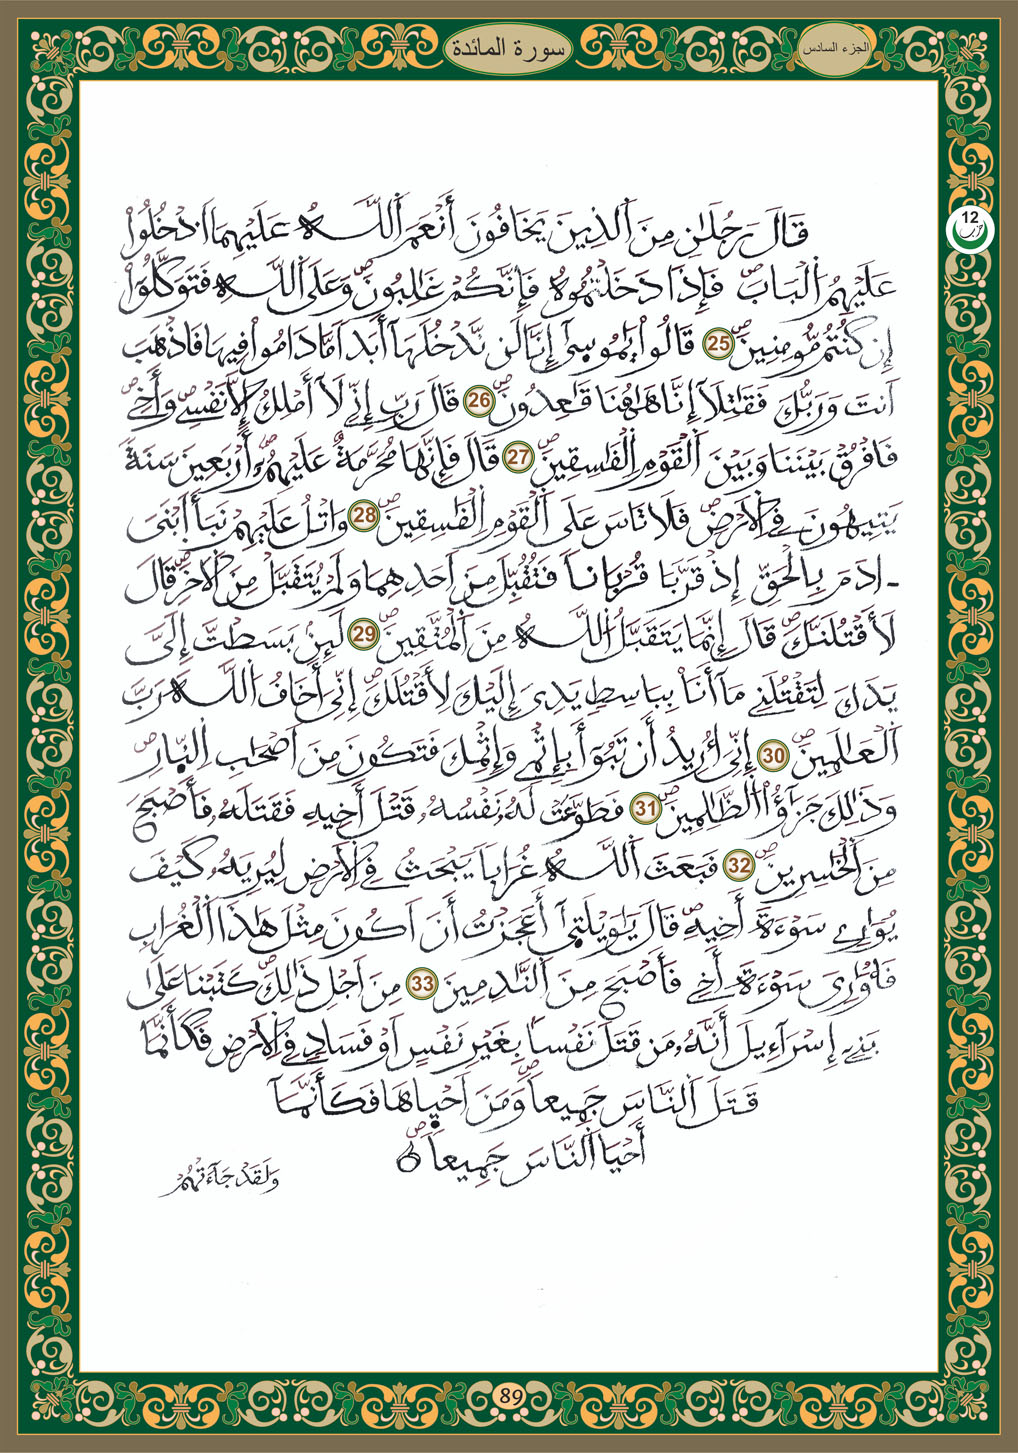 سورة المائدة
الجزء السادس
12
حزب
قَالَ رَجُلَٰنِ مِنَ ٱلذِينَ يَخَافُونَ أَنْعَمَ ٱللَّهُ عَلَيْهِمَا ٱدْخُلُواْ
عَلَيْهِمُ ٱلْبَابَۖ فَإِذَا دَخَلْتُمُوهُ فَإِنَّكُمْ غَٰلِبُونَۖ وَعَلَى ٱللَّهِ فَتَوَكَّلُوٓاْ
إِن كُنتُم مُّومِنِينَۖ 25 قَالُواْ يَٰمُوسَىٰٓ إِنَّا لَن نَّدْخُلَهَآ أَبَداٗ مَّا دَامُواْ فِيهَا فَاذْهَبَ
اَنتَ وَرَبُّكَ فَقَٰتِلَآ إِنَّا هَٰهُنَا قَٰعِدُونَۖ 26 قَالَ رَبِّ إِنِّے لَآ أَمْلِكُ إِلَّا نَفْسِے وَأَخِےۖ
فَافْرُقْ بَيْنَنَا وَبَيْنَ ٱلْقَوْمِ ٱلْفَٰسِقِينَۖ 27 قَالَ فَإِنَّهَا مُحَرَّمَةٌ عَلَيْهِمُۥٓ أَرْبَعِينَ سَنَةٗۖ
يَتِيهُونَ فِے ٱلَارْضِۖ فَلَا تَاسَ عَلَى ٱلْقَوْمِ ٱلْفَٰسِقِينَۖ 28 وَاتْلُ عَلَيْهِمْ نَبَأَ اَ۪بْنَىَ
ـ اٰدَمَ بِالْحَقِّ إِذْ قَرَّبَا قُرْبَاناٗ فَتُقُبِّلَ مِنَ اَحَدِهِمَا وَلَمْ يُتَقَبَّلْ مِنَ ٱلَاخَرِۖ قَالَ
لَأَقْتُلَنَّكَۖ قَالَ إِنَّمَا يَتَقَبَّلُ ٱللَّهُ مِنَ ٱلْمُتَّقِينَۖ 29 لَئِنۢ بَسَطتَ إِلَىَّ
يَدَكَ لِتَقْتُلَنِے مَآ أَنَا۠ بِبَاسِطٖ يَدِىَ إِلَيْكَ لِأَقْتُلَكَۖ إِنِّىَ أَخَافُ ٱللَّهَ رَبَّ
ٱلْعَٰلَمِينَۖ 30 إِنِّىَ أُرِيدُ أَن تَبُوٓأَ بِإِثْمِے وَإِثْمِكَ فَتَكُونَ مِنَ اَصْحَٰبِ ٱلنّ۪ارِۖ
وَذَٰلِكَ جَزَٰٓؤُاْ ٱلظَّٰلِمِينَۖ 31 فَطَوَّعَتْ لَهُۥ نَفْسُهُۥ قَتْلَ أَخِيهِ فَقَتَلَهُۥ فَأَصْبَحَ
مِنَ ٱلْخَٰسِرِينَۖ 32 فَبَعَثَ ٱللَّهُ غُرَاباٗ يَبْحَثُ فِے ٱلَارْضِ لِيُرِيَهُۥ كَيْفَ
يُوَٰرِے سَوْءَةَ أَخِيهِۖ قَالَ يَٰوَيْلَت۪ىٰٓ أَعَجَزْتُ أَنَ اَكُونَ مِثْلَ هَٰذَا ٱلْغُرَابِ
فَأُوَٰرِىَ سَوْءَةَ أَخِے فَأَصْبَحَ مِنَ ٱلنَّٰدِمِينَۖ 33 مِنَ اَجْلِ ذَٰلِكَۖ كَتَبْنَا عَلَىٰ
بَنِےٓ إِسْرَآءِيلَ أَنَّهُۥ مَن قَتَلَ نَفْساَۢ بِغَيْرِ نَفْسٍ اَوْ فَسَادٖ فِے ٱلَارْضِ فَكَأَنَّمَا
قَتَلَ ٱلنَّاسَ جَمِيعاٗۖ وَمَنَ اَحْي۪اهَا فَكَأَنَّمَآ
أَحْيَا ٱلنَّاسَ جَمِيعاٗۖ
وَلَقَدْ جَآءَتْهُمْ
89